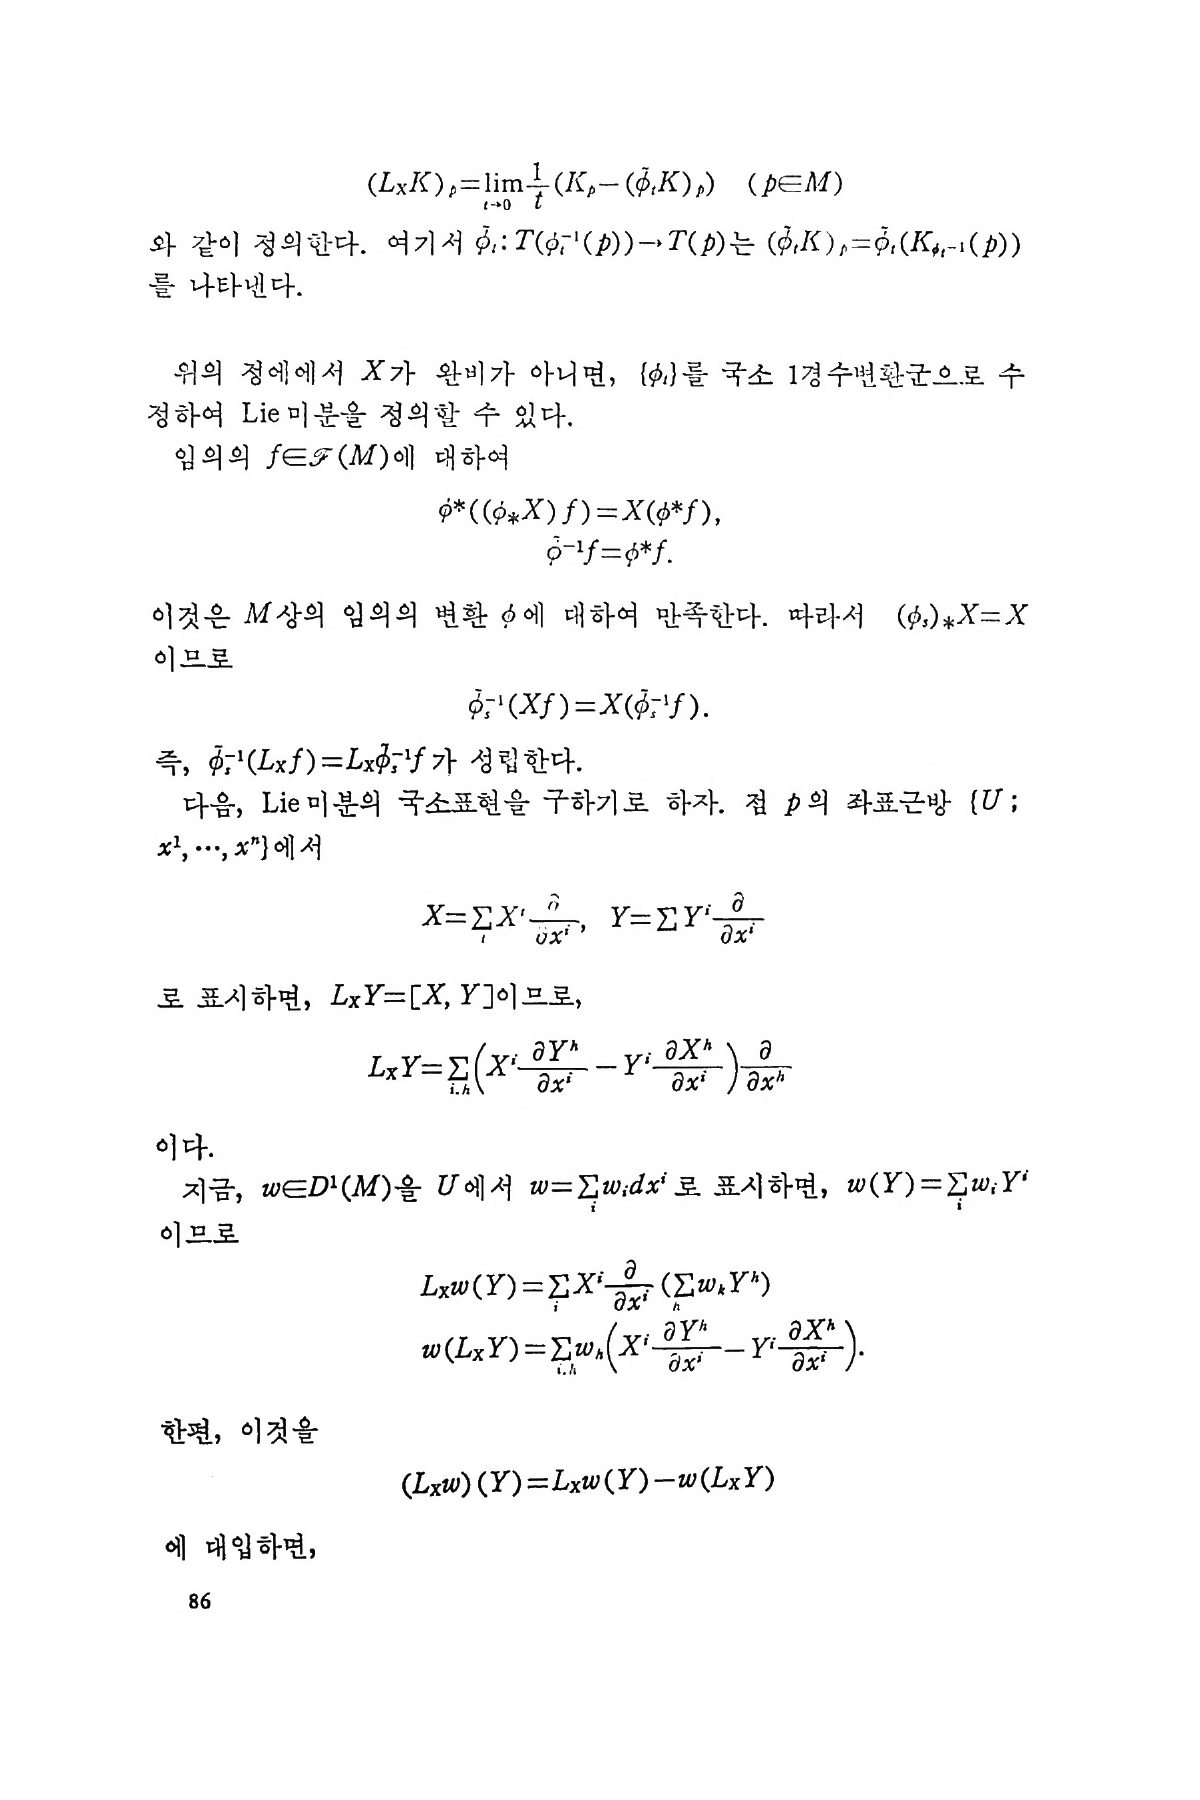 (L_X K)_p = lim_{t→0} 1/t (K_p − (φ̃_t K)_p)  (p∈M)
와 같이 정의한다. 여기서 φ̃_t : T(φ_t^{-1}(p)) → T(p)는 (φ̃_t K)_p = φ̃_t(K_{φ_t^{-1}}(p))
를 나타낸다.
위의 정에에서 X가 완비가 아니면, {φ_t}를 국소 1경수변환군으로 수
정하여 Lie미분을 정의할 수 있다.
임의의 f∈ℱ(M)에 대하여
φ*((φ_*X)f) = X(φ*f),
φ̃^{-1}f = φ*f.
이것은 M상의 임의의 변환 φ에 대하여 만족한다. 따라서 (φ_s)_*X = X
이므로
φ̃_s^{-1}(Xf) = X(φ̃_s^{-1}f).
즉, φ̃_s^{-1}(L_X f) = L_X φ̃_s^{-1}f가 성립한다.
다음, Lie미분의 국소표현을 구하기로 하자. 점 p의 좌표근방 {U;
x^1, …, x^n}에서
X = ∑_i X^i ∂/∂x^i, Y = ∑ Y^i ∂/∂x^i
로 표시하면, L_X Y = [X, Y]이므로,
L_X Y = ∑_{i.h} (X^i ∂Y^h/∂x^i − Y^i ∂X^h/∂x^i) ∂/∂x^h
이다.
지금, w∈D^1(M)을 U에서 w = ∑_i w_i dx^i로 표시하면, w(Y) = ∑_i w_i Y^i
이므로
L_X w(Y) = ∑_i X^i ∂/∂x^i (∑_h w_h Y^h)
w(L_X Y) = ∑_{i.h} w_h (X^i ∂Y^h/∂x^i − Y^i ∂X^h/∂x^i).
한편, 이것을
(L_X w)(Y) = L_X w(Y) − w(L_X Y)
에 대입하면,
86